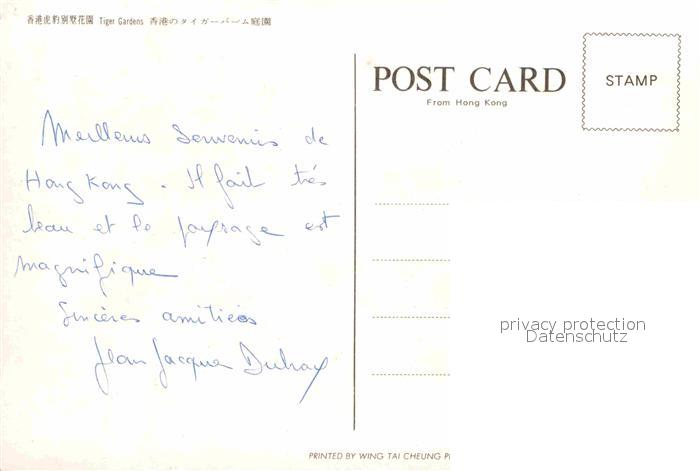 香港虎豹別墅花園 Tiger Gardens 香港のタイガーバーム庭園
POST CARD
From Hong Kong
STAMP
Meilleurs Souvenirs de
Hong Kong. Il fait très
beau et le paysage est
magnifique
Sincères amitiés
Jean Jacques
privacy protection
Datenschutz
PRINTED BY WING TAI CHEUNG P